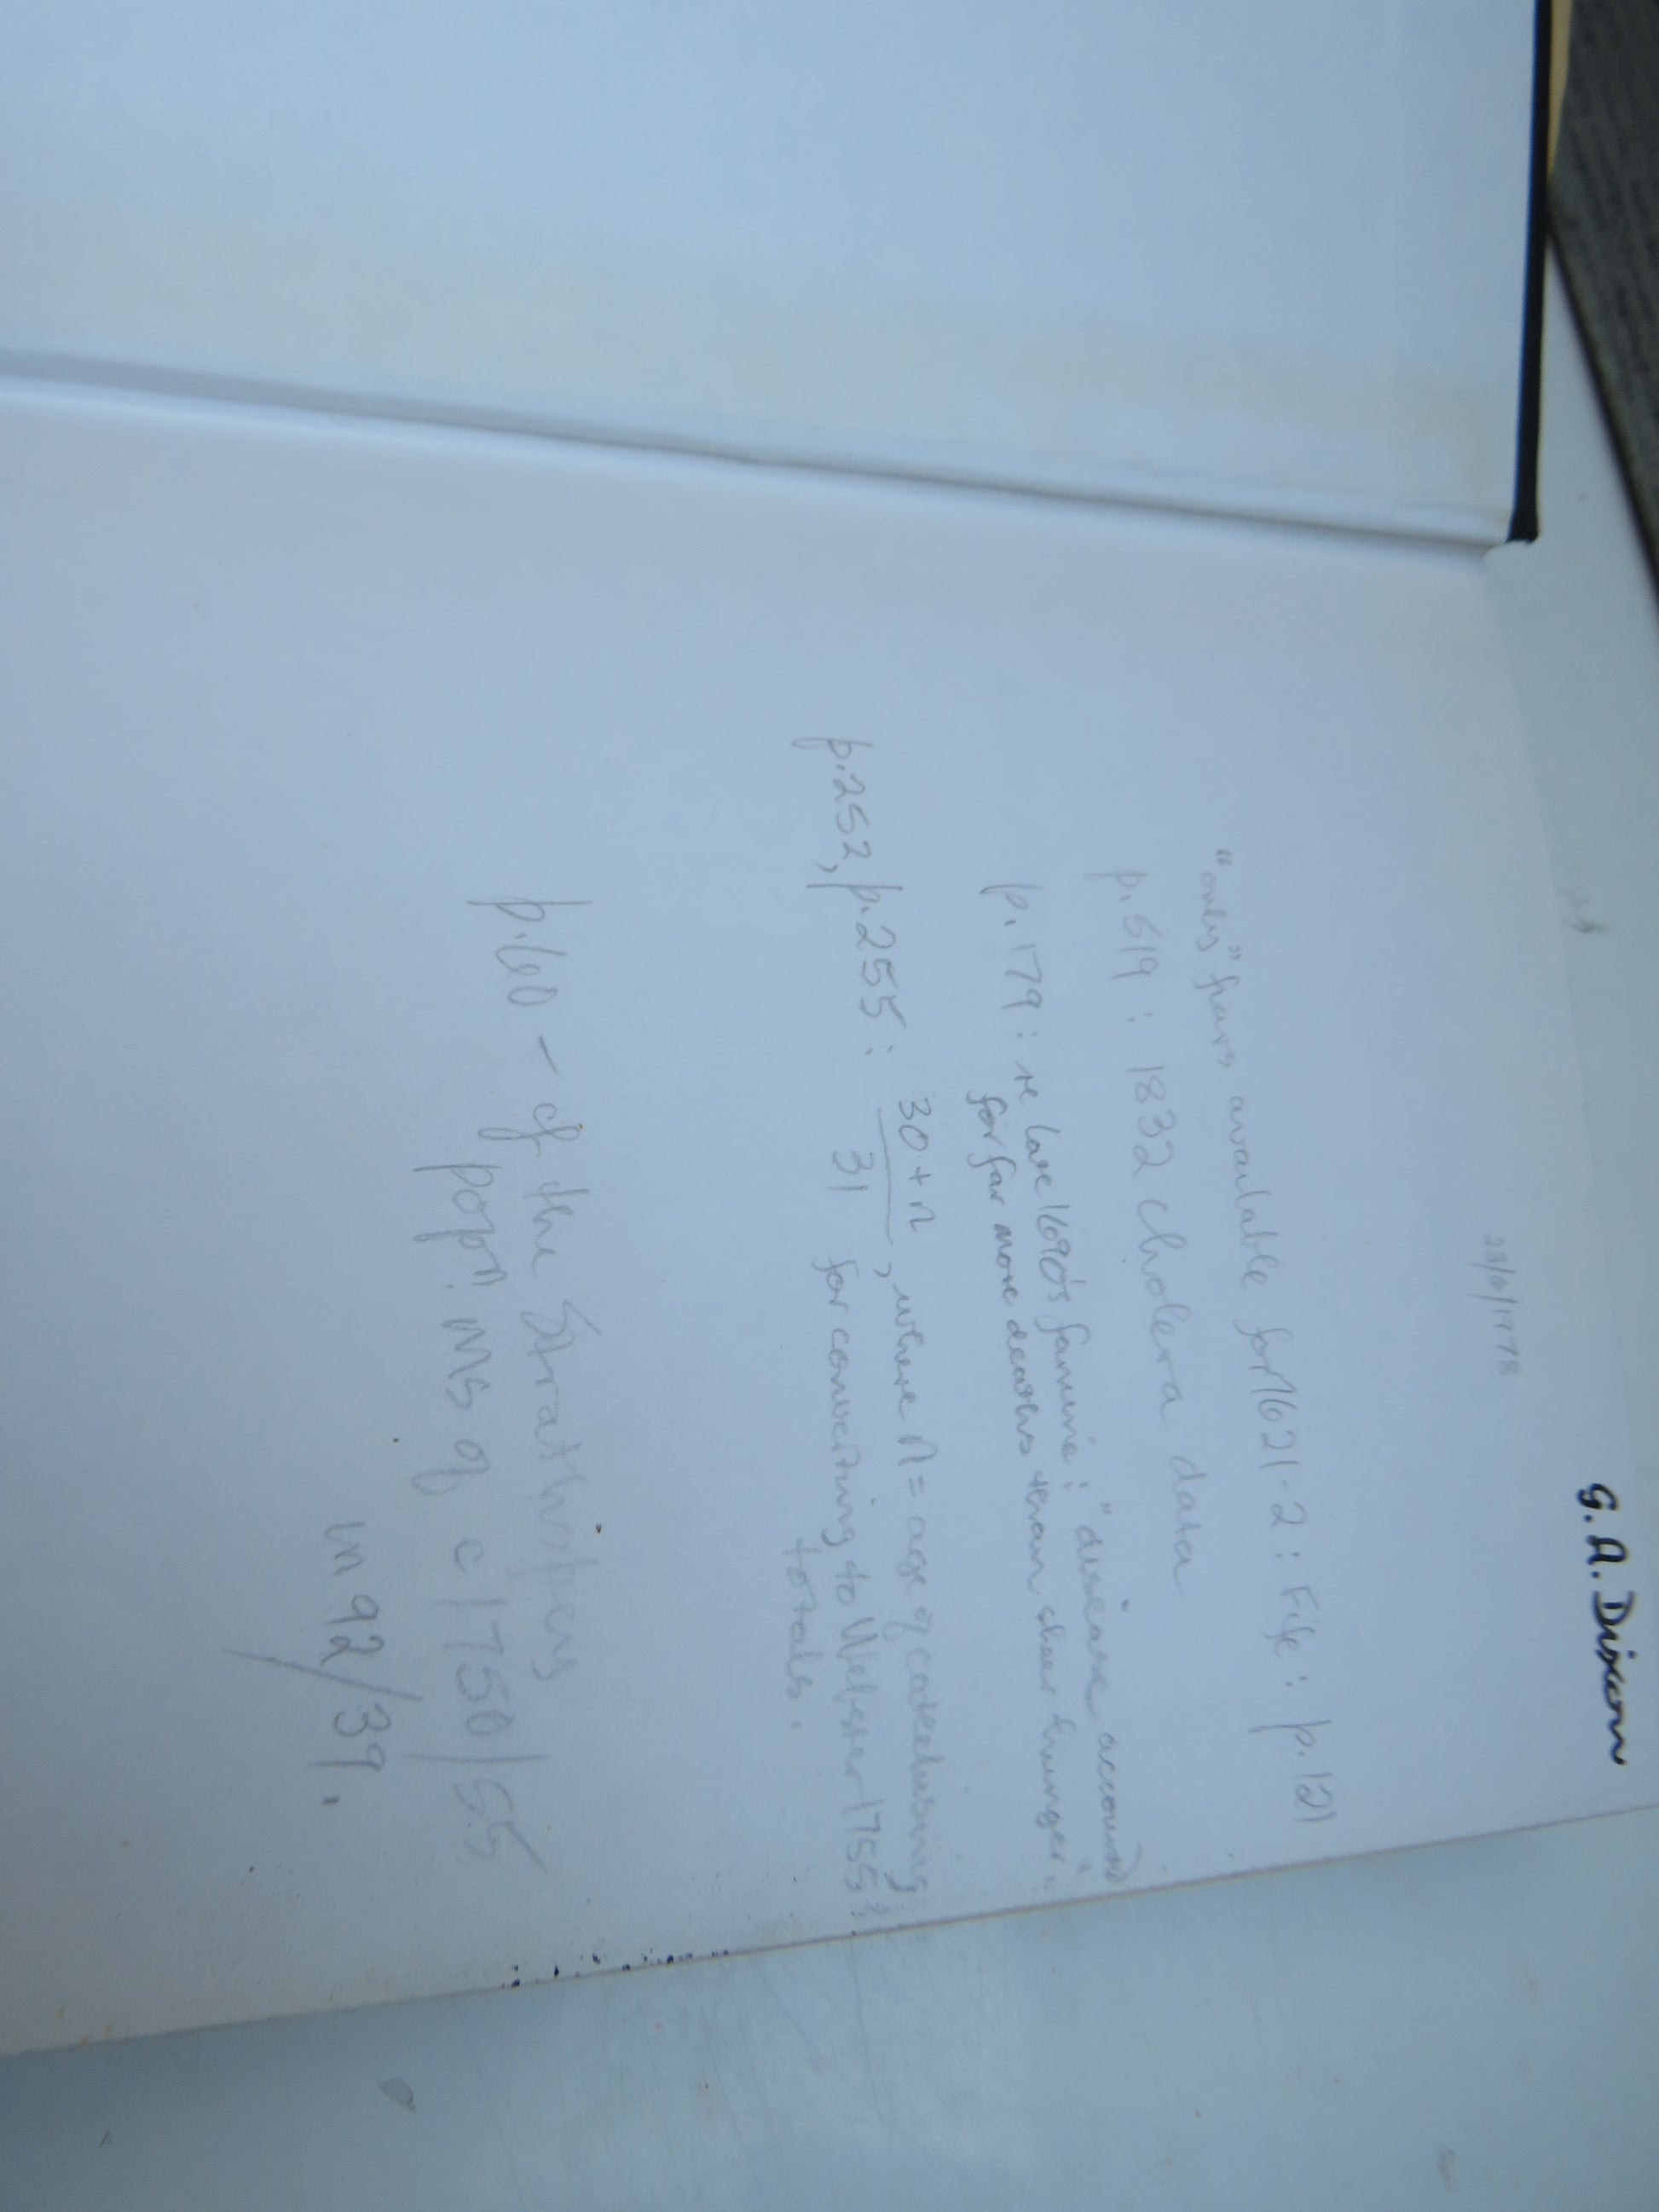 G. A. Dixon
"only" figures available for 1621-2 : Fife : p. 121
p. 519 : 1832 cholera data
p. 179 : re late 1690's famine : "disease accounted
for far more deaths than sheer hunger".
p. 252, p. 255 : 30 + n
31
, where n = age of catechising
for converting to Webster 1755
totals.
p. 60 - cf the Strathspey
popn. MS of c 1750/55
in 92/39.